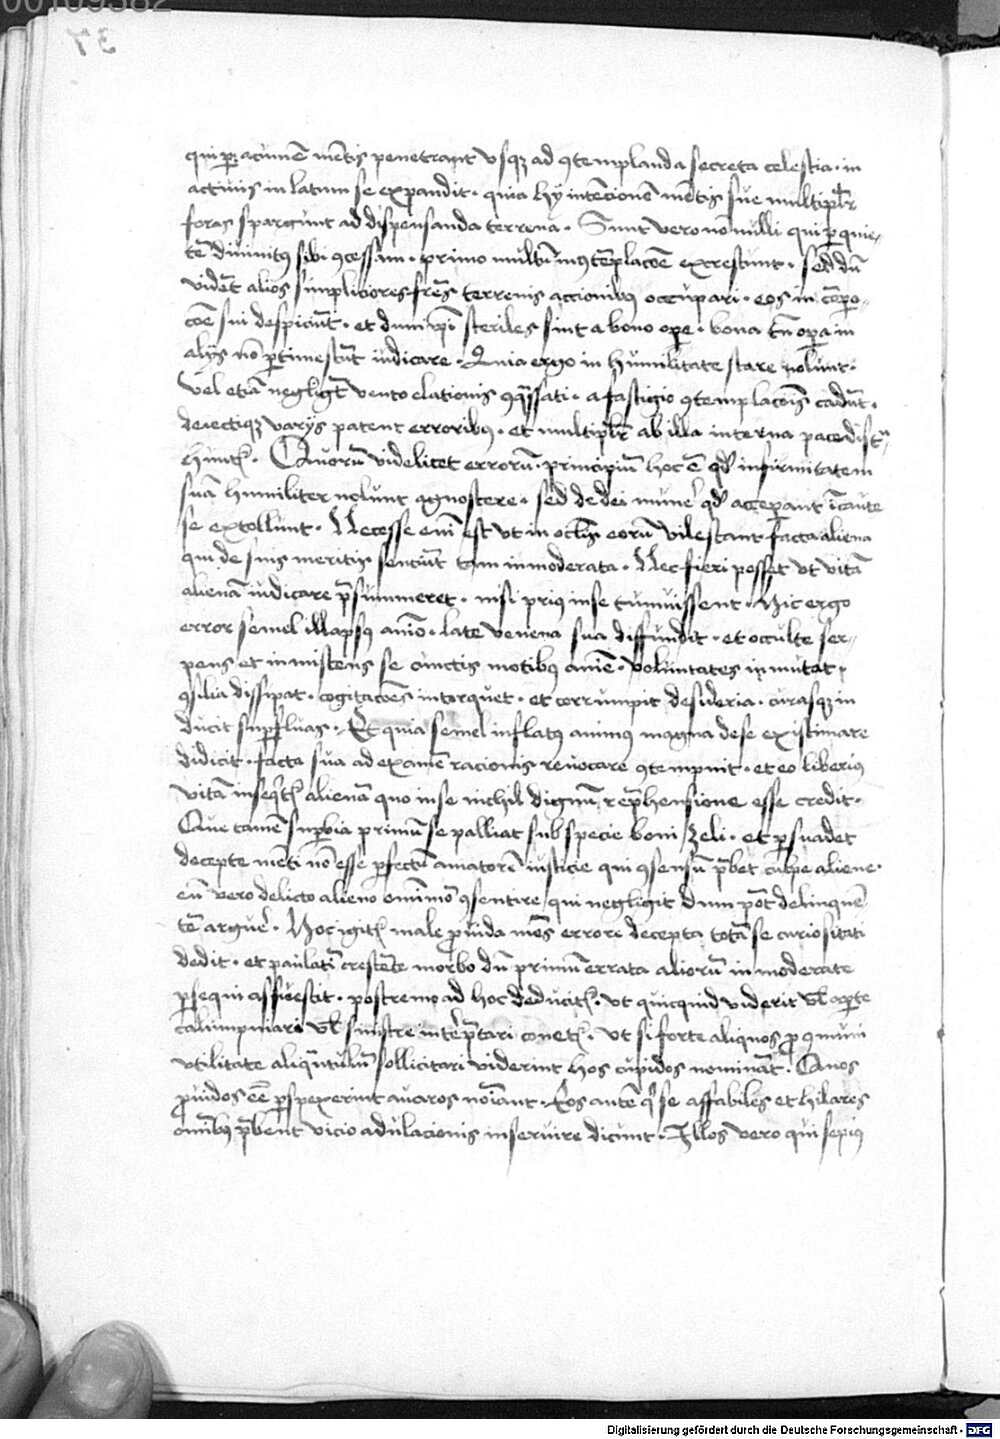 00109382
37
qui p acumē mētis penetrant vsqꝫ ad ꝯtemplanda secreta celestia · in
actiuis in latum se expandit · quia hij intēcionē mētis sue multiplr̄
foras spargunt ad dispensanda terrena · Sunt vero nōnulli qui ꝑ quie⸗
tē diuinitꝰ sibi ꝯcessam · primo multū in ꝯtēplacōe excrescunt · sed dū
vidēt alios simpliciores frēs terrenis accionibꝰ occupari · eos in cōpa⸗
cōe sui despiciūt · et dum ipī steriles sint a bono oꝑe · bona tn̄ oꝑa in
alijs nō ꝑtimescūt iudicare · Quia ergo in humilitate stare nolunt ·
vel etiā negligūt vento elationis ꝯquassati · a fastigio ꝯtemplacōis cadūt ·
deiectiqꝫ varijs patent erroribꝰ · et multiplr̄ ab illa interna pace distᵃ
huntᷣ · Quorū videlicet errorū · principiū hoc ē qđ infirmitatem
suā humiliter nolunt ꝯgnoscere · sed de dei munē qđ acceperant īcaute
se extollunt · Necesse enī est vt in oclīs eorū vilescant facta aliena
qui de suis meritis sentiūt tam inmoderata · Nec fieri posset vt vitā
alienā iudicare p̄summeret · nisi prius in se tumuissent · Hic ergo
error semel illapsꝰ anīo · late venena sua diffundit · et occulte ser⸗
pens et inmiscens se cunctis motibus anīe · voluntates inmutat ·
ꝯsilia dissipat · cogitacōes intorquet · et corrumpit desideria · curasqꝫ in
ducit suꝑfluas · Et quia semel inflatꝰ animus magna de se existimare
didicit · facta sua ad examē racionis reuocare ꝯtempnit · et eo liberius
vitā inseqᵗᷣ alienā quo in se nichil dignū rep̄hensione esse credit ·
Que tamē suꝑbia primū se palliat sub specie boni zeli · et ꝑsuadet
decepte mēti nō esse ꝑfectū amatorē iusticie qui ꝯsensū p̄bet culpe aliene ·
eū vero delicto alieno omīmo ꝯsentire, qui negligit dum pōt delinquē
tē arguē · Hoc igitᷣ male ꝓuida mēs errore decepta totā se curiositati
dedit · et paulatī crescēte morbo dū primū errata aliorū inmoderate
ꝑsequi assuescit · postremo ad hoc deducitᷣ · vt quicquid viderit vl̄ aꝑte
calumpniari vl̄ sinistre intp̄tari conetᷣ · vt si forte aliquos ꝓ ꝯmuni
vtilitate aliqūtulū sollicitari viderint hos cupidos nomināt · Quos
ꝓuidos eē ꝑspexerint auaros noīant · Eos autē qͥ se affabiles et hilares
omībꝰ p̄bent vicio adulacionis inseruire dicunt · Illos vero qui sepius
Digitalisierung gefördert durch die Deutsche Forschungsgemeinschaft - DFG